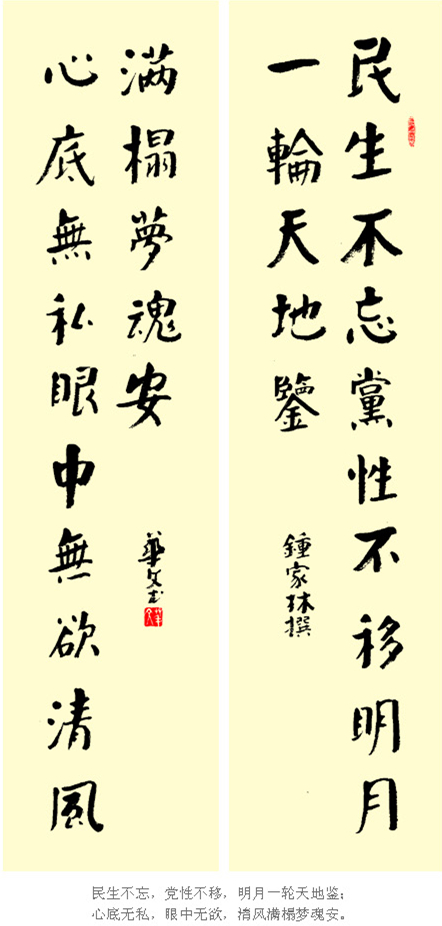 民生不忘黨性不移明月
一輪天地鑒
鍾家林撰
心底無私眼中無欲清風
满榻夢魂安
華文书
民生不忘，党性不移，明月一轮天地鉴；
心底无私，眼中无欲，清风满榻梦魂安。